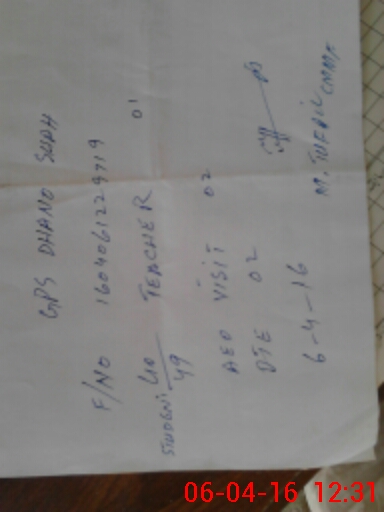 GPS DHANO SUPH
F/NO 1604061229719
STUDENT 40/49 TEACHER 01
AEO VISIT 02
DTE 02
6-4-16
M. TUFAIL CMMF
06-04-16 12:31